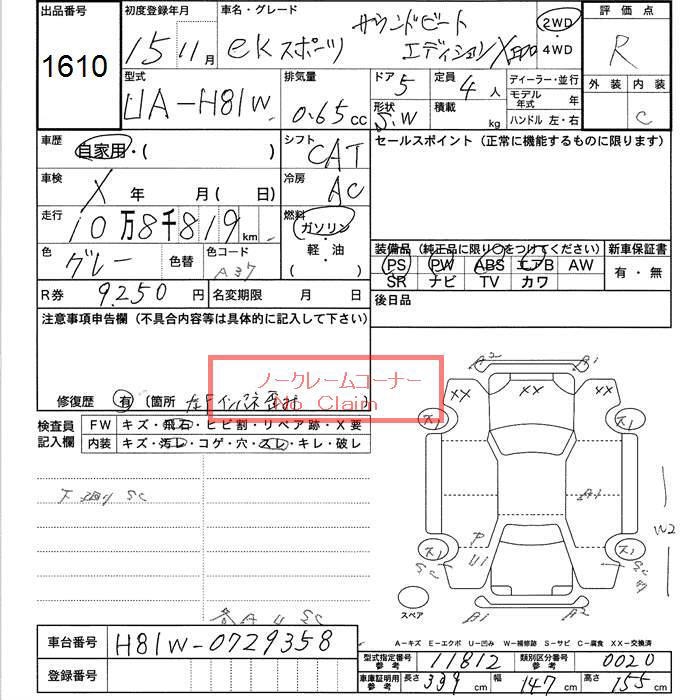 出品番号
1610
初度登録年月
15 11月
車名・グレード
ekスポーツ サウンドビート
エディションX
2WD
4WD
評価点
R
外装 内装
C
型式
UA-H81W
排気量
0.65cc
ドア 5
定員 4人
形状 S.W
積載 kg
ディーラー・並行
モデル年式 年
ハンドル 左・右
車歴
自家用・( )
シフト
CAT
セールスポイント（正常に機能するものに限ります）
車検
X年 月(日)
冷房
AC
走行
10万8千819km
燃料
ガソリン
軽・油
( )
色
グレー
色替
色コード
A37
装備品（純正品に限り○をつけてください）
PS PW ABS エアB AW
SR ナビ TV カワ
新車保証書
有・無
R券 9.250円
名変期限 月 日
後日品
注意事項申告欄（不具合内容等は具体的に記入して下さい）
ノークレームコーナー
No Claim
修復歴 有（箇所 左Fインパネ
検査員
記入欄
FW キズ・飛石・ヒビ割・リペア跡・X要
内装 キズ・汚レ・コゲ・穴・スレ・キレ・破レ
下廻り SC
A2 A1
XX XX XX
ス1 ス1
A1
P
U1
W2
ス1 ス1
スペア
B1 A2
各 A U SC
A-キズ E-エクボ U-凹み W-補修跡 S-サビ C-腐食 XX-交換済
車台番号
H81W-0729358
登録番号
型式指定番号 参考 11812
類別区分番号 参考 0020
車庫証明用 参考 長さ 339cm 幅 147cm 高さ 155cm